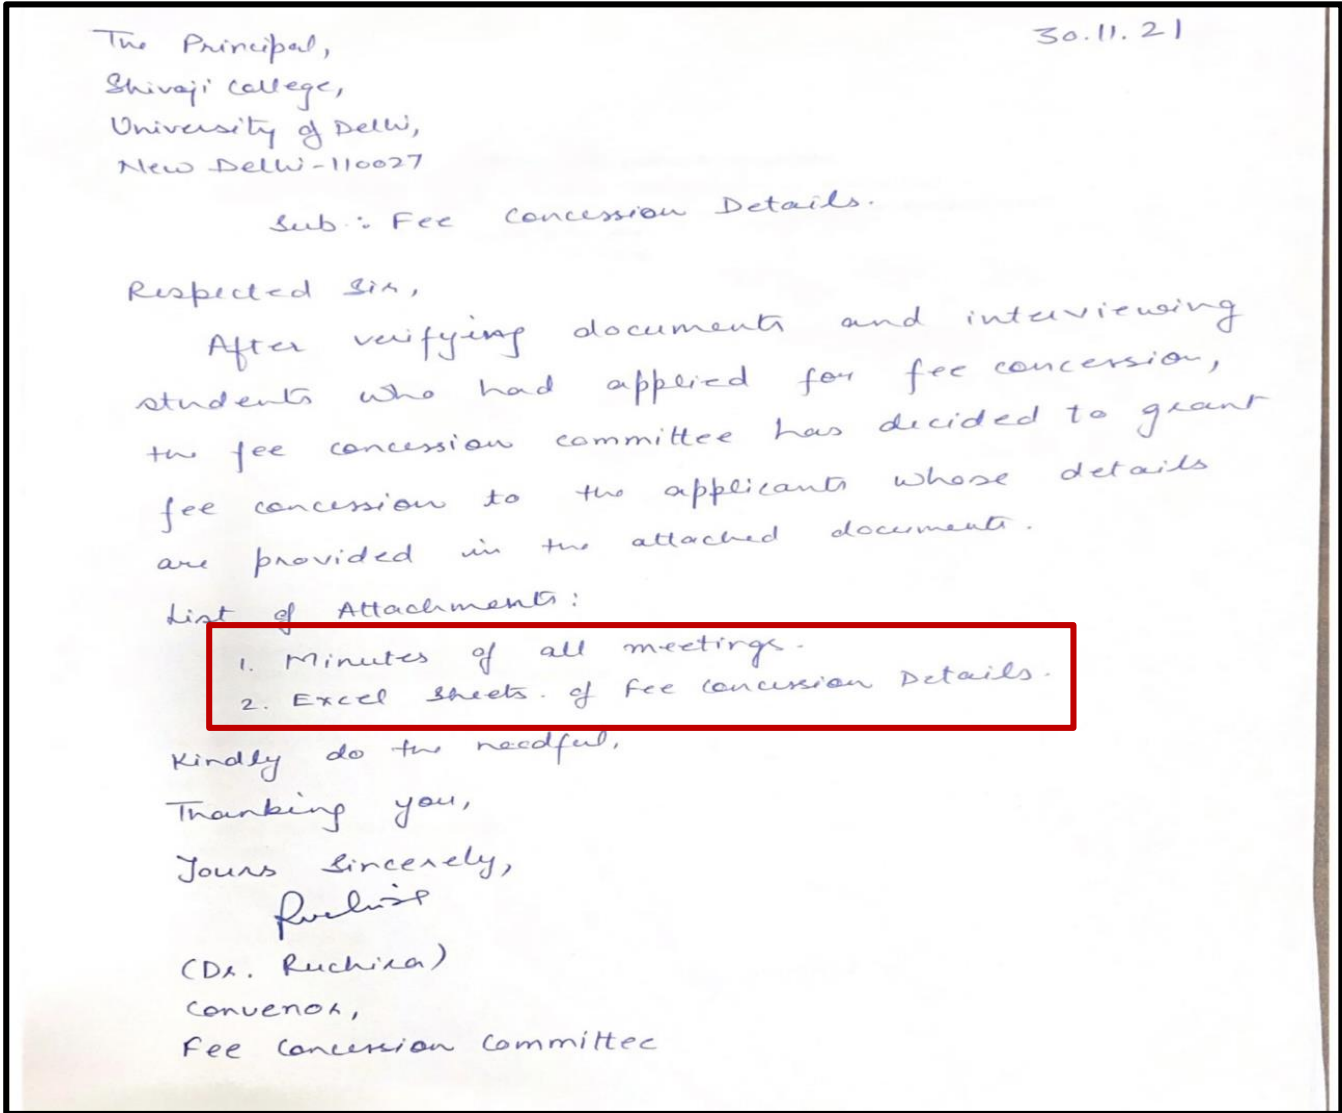 The Principal, 30.11.21
Shivaji College,
University of Delhi,
New Delhi-110027
Sub: Fee Concession Details.
Respected Sir,
After verifying documents and interviewing
students who had applied for fee concession,
the fee concession committee has decided to grant
fee concession to the applicants whose details
are provided in the attached documents.
List of Attachments:
1. Minutes of all meetings.
2. Excel Sheets. of Fee Concession Details.
Kindly do the needful,
Thanking you,
Yours Sincerely,
Ruchira
(Dr. Ruchira)
Convenor,
Fee Concession Committee